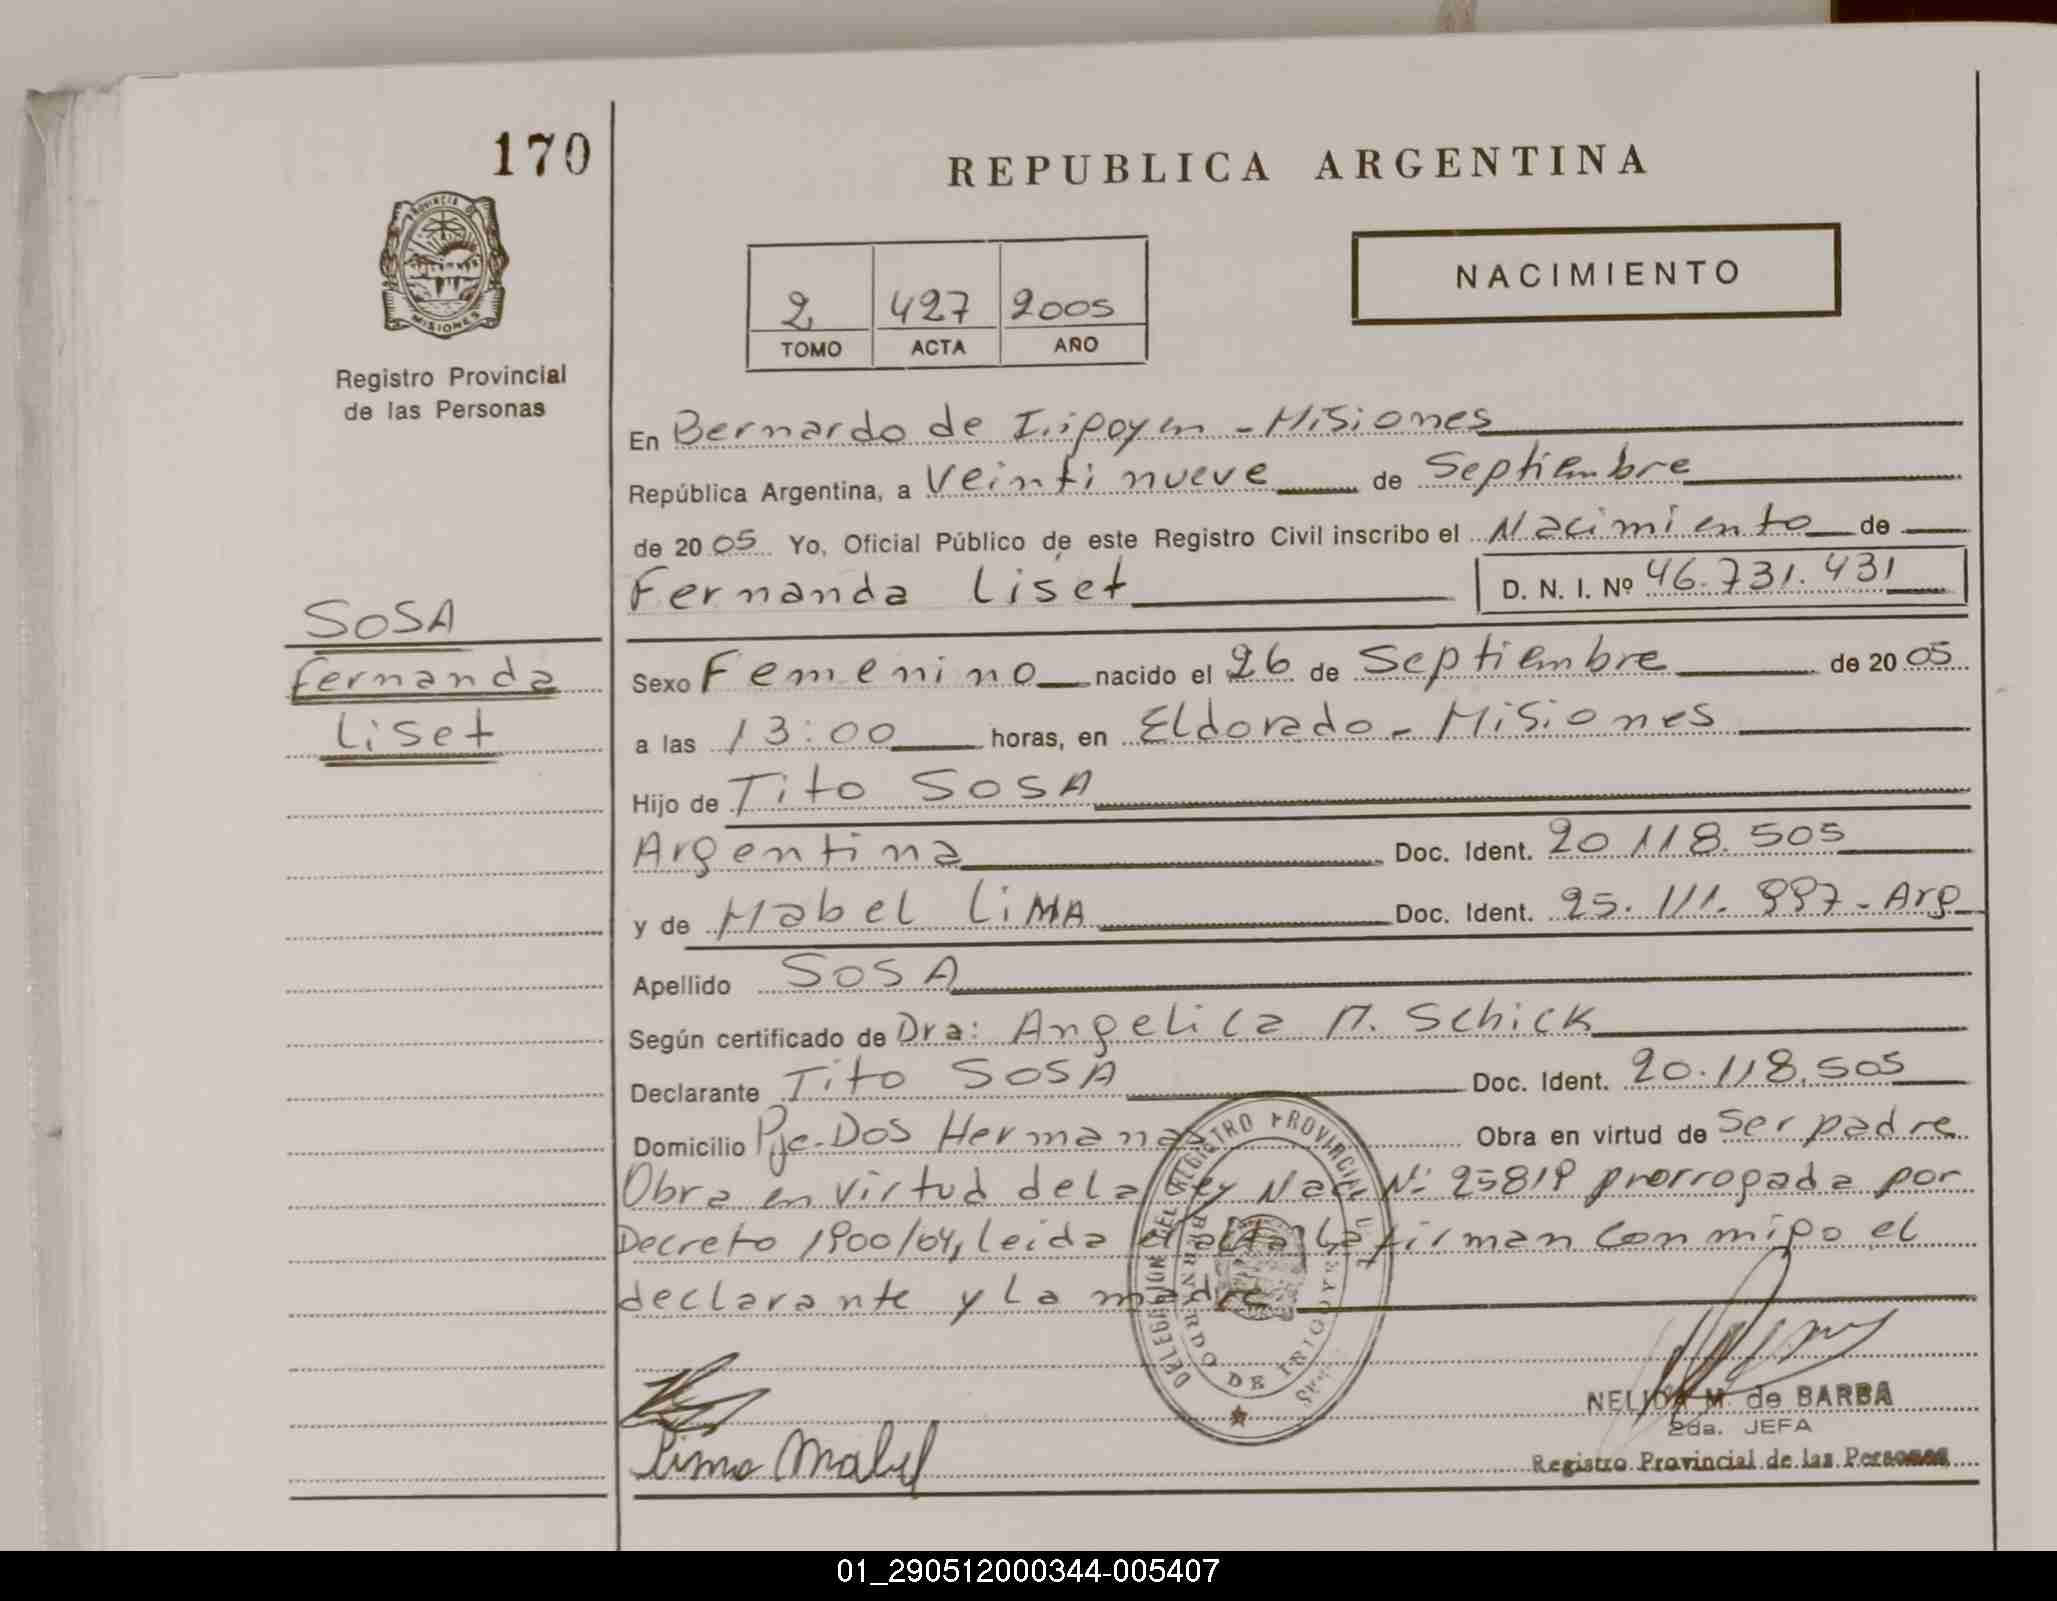 170
REPUBLICA ARGENTINA
NACIMIENTO
2 427 2005
TOMO ACTA AÑO
PROVINCIA DE
MISIONES
Registro Provincial
de las Personas
En Bernardo de Irigoyen - Misiones
República Argentina, a Veinti nueve de Septiembre
de 2005 Yo, Oficial Público de este Registro Civil inscribo el Nacimiento de
Fernanda Liset D. N. I. Nº 46.731.431
SOSA
Fernanda
Liset
Sexo Femenino nacido el 26 de Septiembre de 2005
a las 13:00 horas, en Eldorado - Misiones
Hijo de Tito SOSA
Argentina Doc. Ident. 20.118.505
y de Mabel LiMA Doc. Ident. 25.111.997 - Arg
Apellido SOSA
Según certificado de Dra: Angelica M. Schick
Declarante Tito SOSA Doc. Ident. 20.118.505
Domicilio Pje. Dos Hermanas Obra en virtud de Ser padre
Obra en virtud de la Ley Nac. Nº 25819 prorrogada por
Decreto 1900/04, leida el acta la firman conmigo el
declarante y la madre
DELEGACION DEL REGISTRO PROVINCIAL
BERNARDO DE IRIGOYEN
Lima Mabel
NELIDA M. de BARBA
2da. JEFA
Registro Provincial de las Personas
01_290512000344-005407